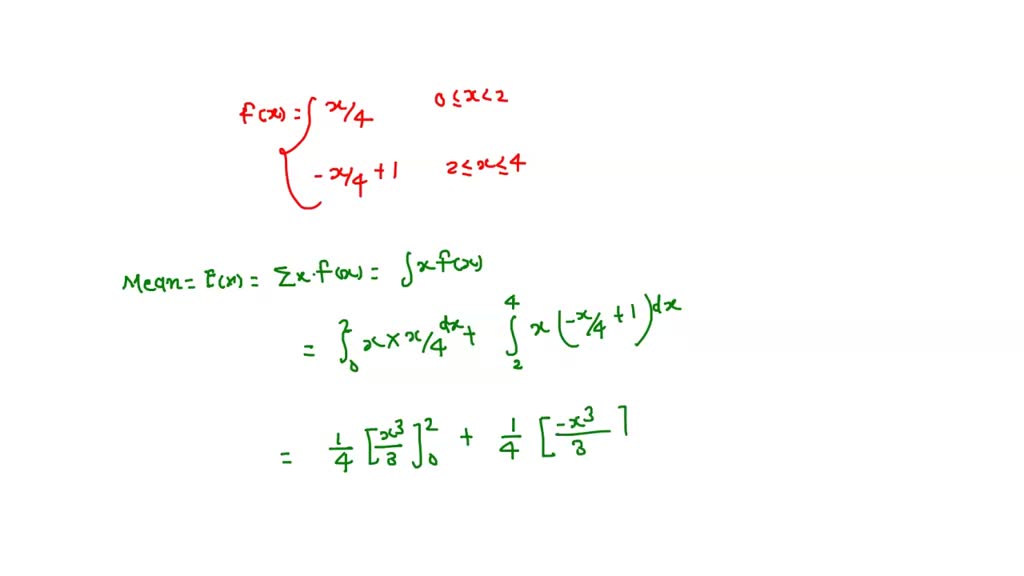 f(x) = { x/4 0 ≤ x < 2
- x/4 + 1 2 ≤ x ≤ 4
Mean = E(x) = Σx·f(x) = ∫x f(x)
= ∫₀² x × x/4 dx + ∫₂⁴ x (-x/4 + 1) dx
= 1/4 [x³/3]₀² + 1/4 [-x³/3]